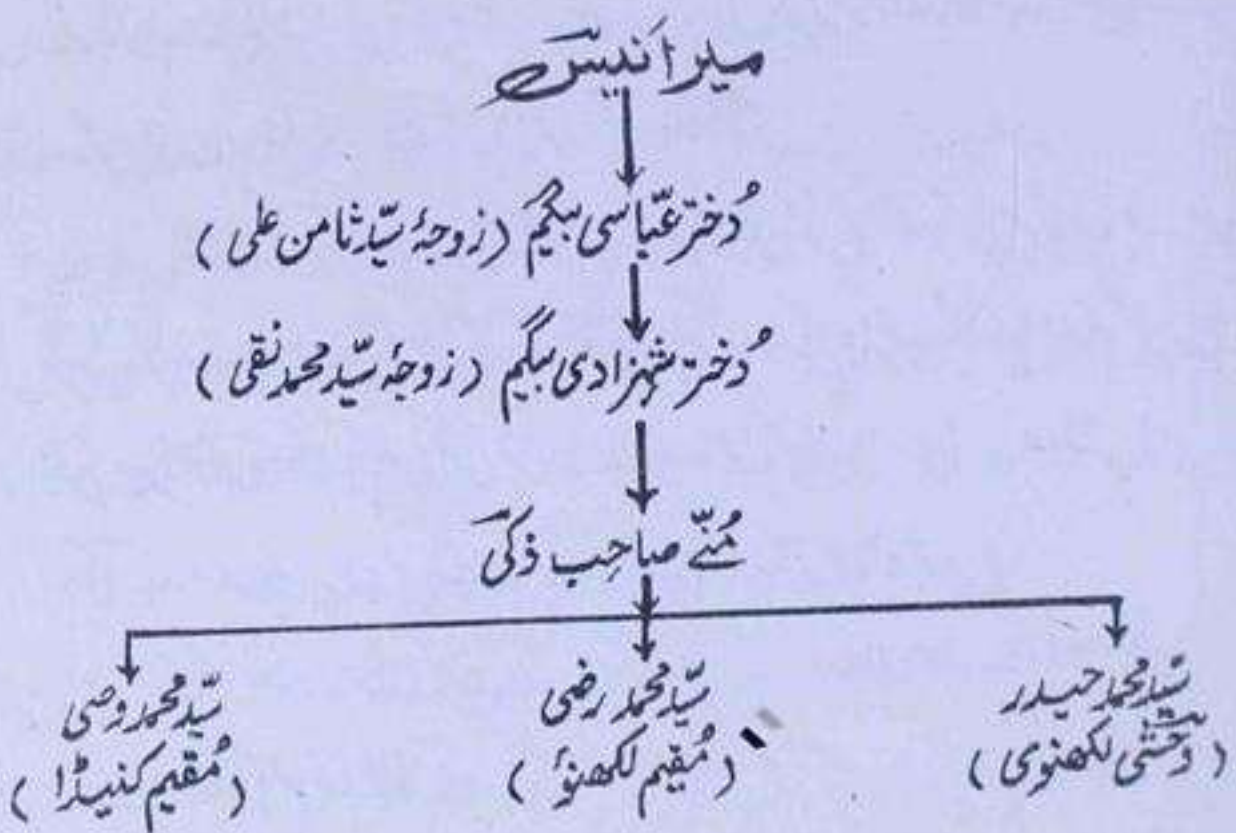 میر انیسؔ
دُختر عبّاسی بیگم (زوجۂ سیّد ثامن علی)
دُختر شہزادی بیگم (زوجۂ سیّد محمد نقی)
مُنّے صاحِب ذکیؔ
سیّد محمد حیدر
(وحشیؔ لکھنوی)
سیّد محمد رضی
(مُقیم لکھنؤ)
سیّد محمد وصی
(مُقیم کنیڈا)